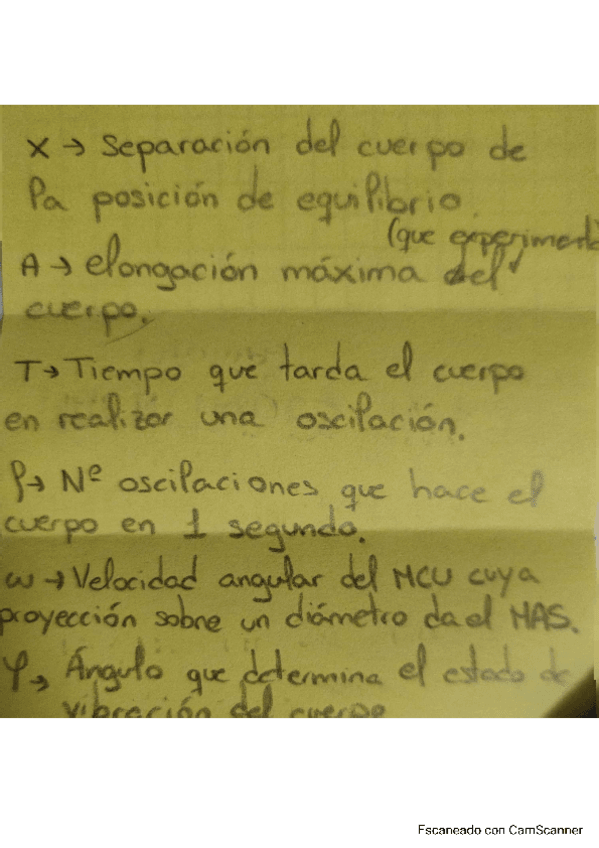 X → Separación del cuerpo de
la posición de equilibrio.
(que experimenta)
A → elongación máxima del
cuerpo.
T → Tiempo que tarda el cuerpo
en realizar una oscilación.
f → Nº oscilaciones que hace el
cuerpo en 1 segundo.
ω → Velocidad angular del MCU cuya
proyección sobre un diámetro da el MAS.
φ → Ángulo que determina el estado de
vibración del cuerpo
Escaneado con CamScanner